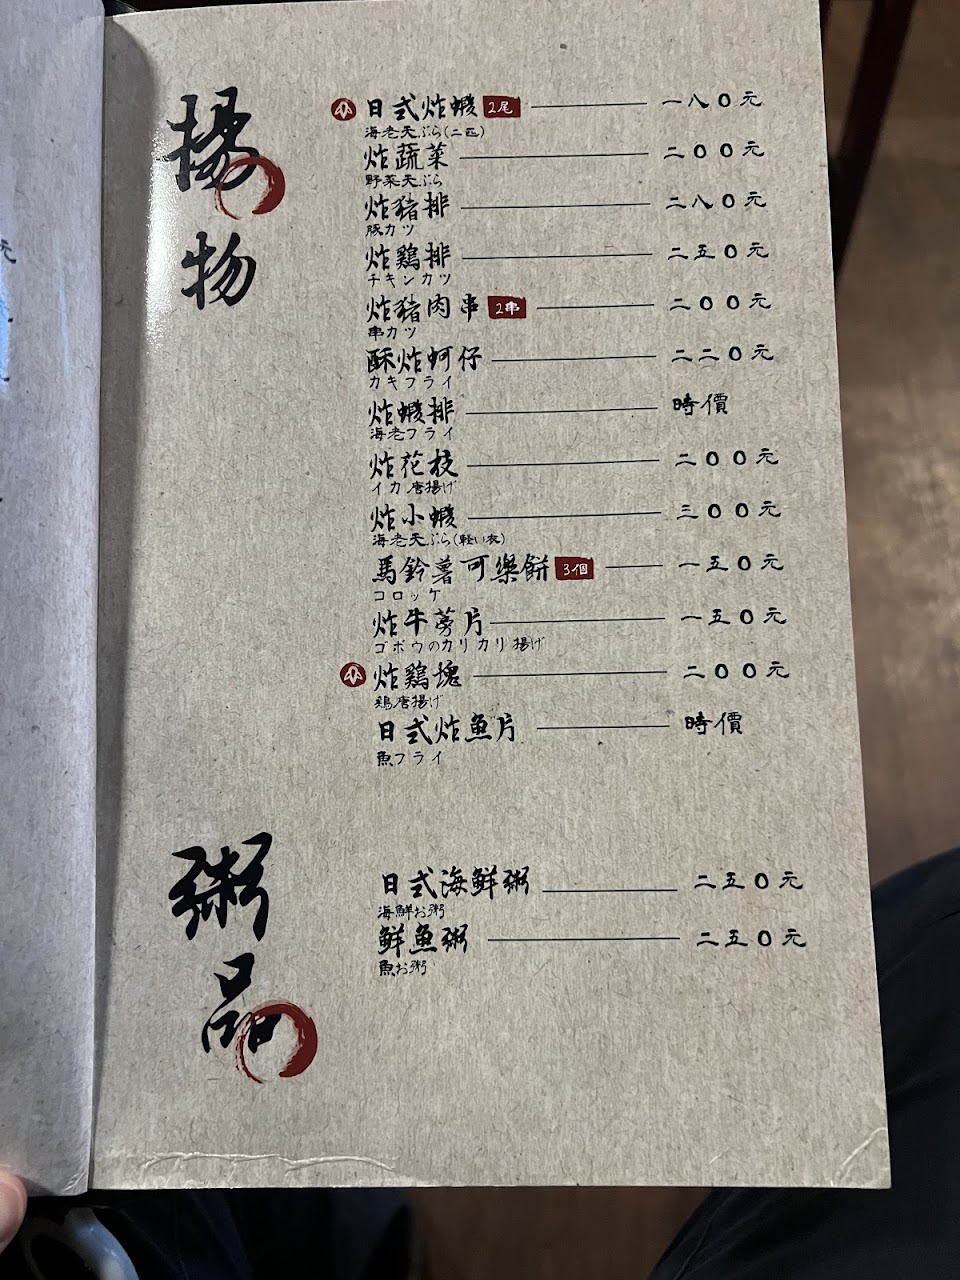 揚物
日式炸蝦 2尾 一八０元
海老天ぷら(二匹)
炸蔬菜 二００元
野菜天ぷら
炸豬排 二八０元
豚カツ
炸鷄排 二五０元
チキンカツ
炸豬肉串 2串 二００元
串カツ
酥炸蚵仔 二二０元
カキフライ
炸蝦排 時價
海老フライ
炸花枝 二００元
イカ唐揚げ
炸小蝦 三００元
海老天ぷら(軽い衣)
馬鈴薯可樂餅 3個 一五０元
コロッケ
炸牛蒡片 一五０元
ゴボウのカリカリ揚げ
炸鷄塊 二００元
鶏唐揚げ
日式炸魚片 時價
魚フライ
粥品
日式海鮮粥 二五０元
海鮮お粥
鮮魚粥 二五０元
魚お粥
元